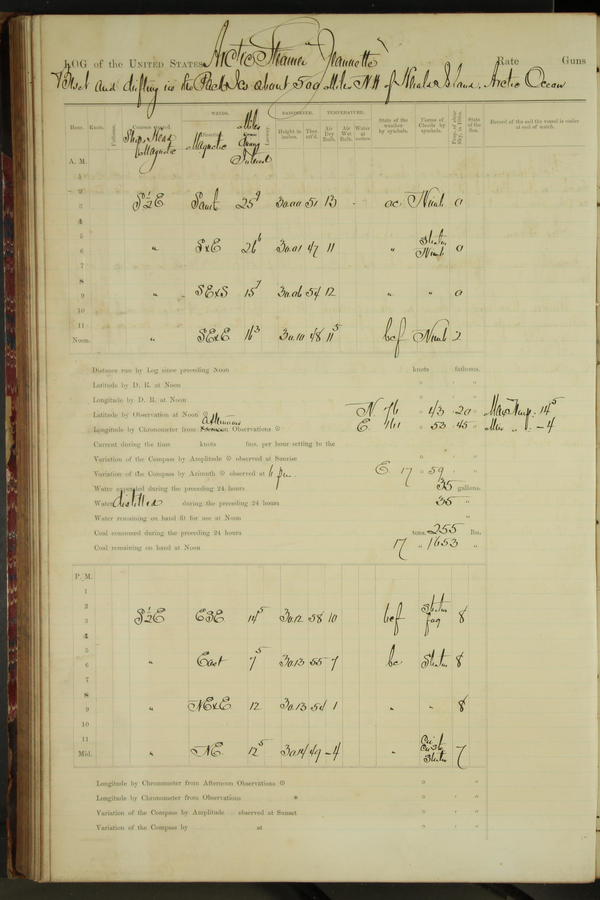 LOG of the UNITED STATES Arctic Steamer "Jeannette" Rate Guns
Beset and drifting in the Pack Ice about 500 Miles NW of Herald Island. Arctic Ocean
WINDS. BAROMETER. TEMPERATURE.
Hour. Knots. Fathoms. Courses steered. Ship's Head Magnetic Magnetic Miles Leeway. Height in inches. Ther. att'd. Air Dry Bulb. Air Wet Bulb. Water at surface. State of the weather by symbols. Forms of Clouds by symbols. State of the Sea. Record of the sail the vessel is under at end of watch.
A. M.
1
2
3 S½E 30.00 51 13 oc Nimb 0
4
5
6 " SxE 26⁶ 30.01 47 11 " Stratus Nimb 0
7
8
9 " SExS 15⁷ 30.06 54 12 " " 0
10
11
Noon. " SExE 16³ 30.10 48 11⁵ bcf Nimb 2
Distance run by Log since preceding Noon knots fathoms.
Latitude by D. R. at Noon ° ' "
Longitude by D. R. at Noon ° ' "
Latitude by Observation at Noon ☉ N. 76 ° 43 ' 20 " Max Temp: 14⁵
Longitude by Chronometer from Afternoon Observations ☉ E. 161 ° 53 ' 45 " Min " : -4
Current during the time knots fms. per hour setting to the
Variation of the Compass by Amplitude ☉ observed at Sunrise ° ' "
Variation of the Compass by Azimuth ☉ observed at 6 pm. E 17 ° 59 ' "
Water expended during the preceding 24 hours 35 gallons.
Water distilled during the preceding 24 hours 35 "
Water remaining on hand fit for use at Noon "
Coal consumed during the preceding 24 hours tons. 255 lbs.
Coal remaining on hand at Noon 17 " 1653 "
P. M.
1
2
3 S½E ESE 14⁵ 30.12 58 10 bcf Stratus fog 8
4
5
6 " East 7⁵ 30.13 55 7 bc Stratus 8
7
8
9 " NExE 12 30.13 54 1 " " 8
10
11
Mid. " NE 12⁵ 30.14 49 -4 " Stratus 7
Longitude by Chronometer from Afternoon Observations ☉ ° ' "
Longitude by Chronometer from Observations * ° ' "
Variation of the Compass by Amplitude observed at Sunset ° ' "
Variation of the Compass by at ° ' "